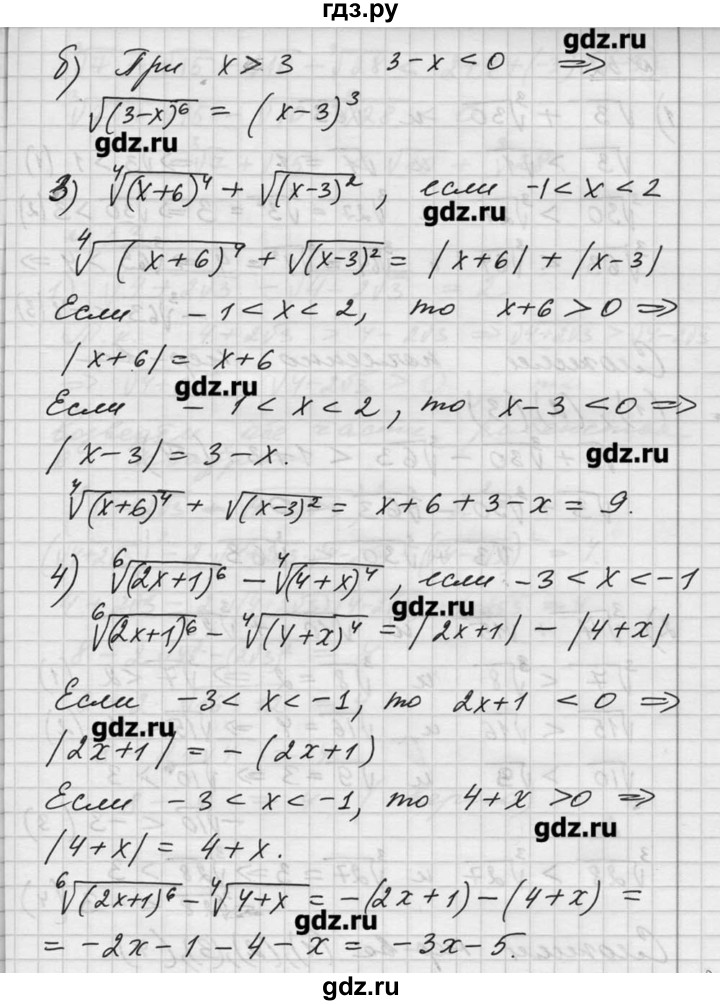 гдз.ру
б) При x > 3   3-x < 0 ⟹
gdz.ru
√(3-x)⁶ = (x-3)³
gdz.ru
3) ⁴√(x+6)⁴ + √(x-3)², если -1 < x < 2
gdz.ru
⁴√(x+6)⁴ + √(x-3)² = |x+6| + |x-3|
Если -1 < x < 2, то x+6 > 0 ⟹
|x+6| = x+6
gdz.ru
Если -1 < x < 2, то x-3 < 0 ⟹
|x-3| = 3-x.
gdz.ru
⁴√(x+6)⁴ + √(x-3)² = x+6+3-x = 9.
4) ⁶√(2x+1)⁶ - ⁴√(4+x)⁴, если -3 < x < -1
gdz.ru
⁶√(2x+1)⁶ - ⁴√(4+x)⁴ = |2x+1| - |4+x|
Если -3 < x < -1, то 2x+1 < 0 ⟹
gdz.ru
|2x+1| = -(2x+1)
Если -3 < x < -1, то 4+x > 0 ⟹
gdz.ru
|4+x| = 4+x.
⁶√(2x+1)⁶ - ⁴√4+x = -(2x+1)-(4+x) =
gdz.ru
= -2x-1-4-x = -3x-5.
gdz.ru